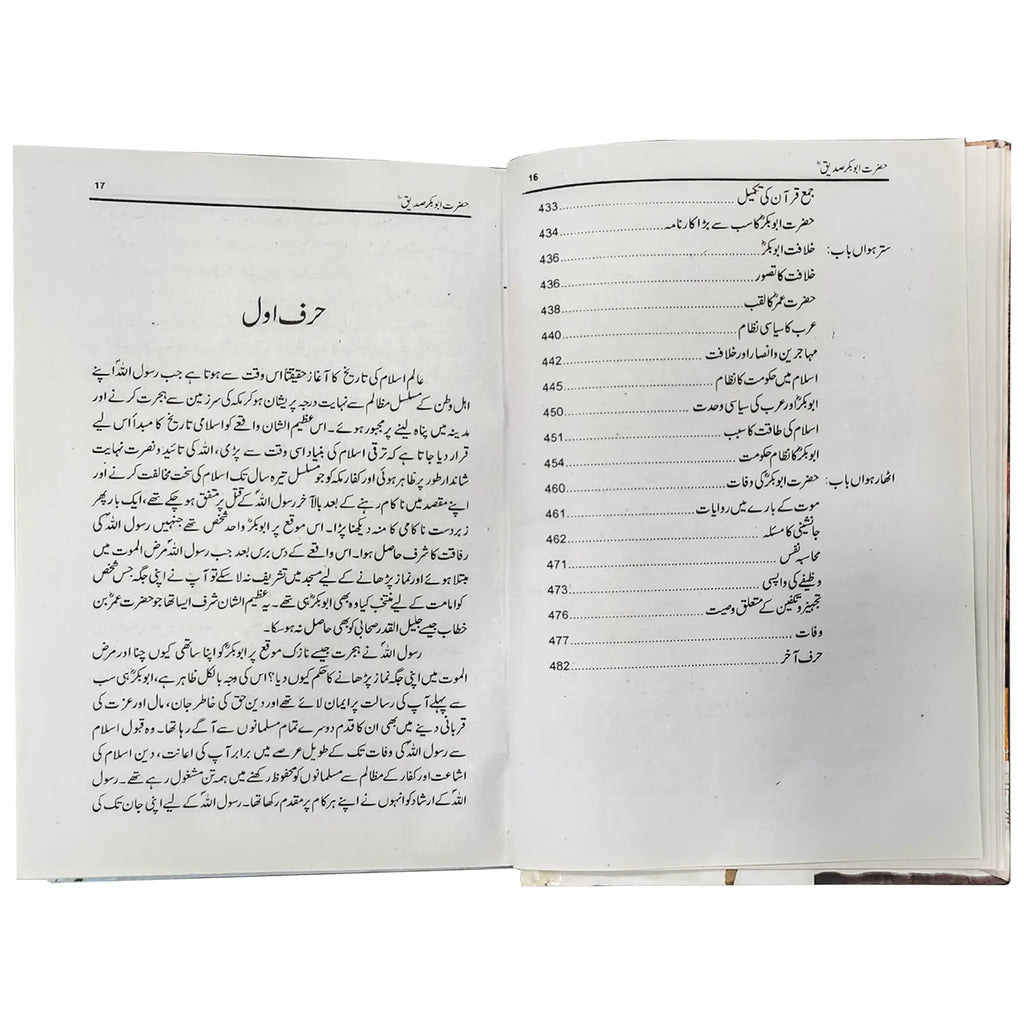 حضرت ابوبکر صدیقؓ 16
جمع قرآن کی تکمیل 433
حضرت ابوبکرؓ کا سب سے بڑا کارنامہ 434
سترہواں باب: خلافت ابوبکرؓ 436
خلافت کا تصور 436
حضرت عمرؓ کا لقب 438
عرب کا سیاسی نظام 440
مہاجرین و انصار اور خلافت 442
اسلام میں حکومت کا نظام 445
ابوبکرؓ اور عرب کی سیاسی وحدت 450
اسلام کی طاقت کا سبب 451
ابوبکرؓ کا نظام حکومت 454
اٹھارہواں باب: حضرت ابوبکرؓ کی وفات 460
موت کے بارے میں روایات 461
جانشینی کا مسئلہ 462
محاسبہ نفس 471
وظیفے کی واپسی 473
تجہیز و تکفین کے متعلق وصیت 476
وفات 477
حرف آخر 482
حضرت ابوبکر صدیقؓ 17
حرف اول
عالم اسلام کی تاریخ کا آغاز حقیقتاً اس وقت سے ہوتا ہے جب رسول اللہؐ اپنے
اہل وطن کے مسلسل مظالم سے نہایت درجہ پریشان ہو کر مکہ کی سرزمین سے ہجرت کرنے اور
مدینہ میں پناہ لینے پر مجبور ہوئے۔ اس عظیم الشان واقعے کو اسلامی تاریخ کا مبدأ اس لیے
قرار دیا جاتا ہے کہ ترقی اسلام کی بنیاد اسی وقت سے پڑی، اللہ کی تائید و نصرت نہایت
شاندار طور پر ظاہر ہوئی اور کفار مکہ کو جو مسلسل تیرہ سال تک اسلام کی سخت مخالفت کرنے اور
اپنے مقصد میں ناکام رہنے کے بعد بالآخر رسول اللہؐ کے قتل پر متفق ہو چکے تھے، ایک بار پھر
زبردست ناکامی کا منہ دیکھنا پڑا۔ اس موقع پر ابوبکرؓ واحد شخص تھے جنہیں رسول اللہؐ کی
رفاقت کا شرف حاصل ہوا۔ اس واقعے کے دس برس بعد جب رسول اللہؐ مرض الموت میں
مبتلا ہوئے اور نماز پڑھانے کے لیے مسجد میں تشریف نہ لا سکے تو آپ نے اپنی جگہ جس شخص
کو امامت کے لیے منتخب کیا وہ بھی ابوبکرؓ ہی تھے۔ یہ عظیم الشان شرف ایسا تھا جو حضرت عمرؓ بن
خطاب جیسے جلیل القدر صحابی کو بھی حاصل نہ ہو سکا۔
رسول اللہؐ نے ہجرت جیسے نازک موقع پر ابوبکرؓ کو اپنا ساتھی کیوں چنا اور مرض
الموت میں اپنی جگہ نماز پڑھانے کا حکم کیوں دیا؟ اس کی وجہ بالکل ظاہر ہے، ابوبکرؓ ہی سب
سے پہلے آپ کی رسالت پر ایمان لائے تھے اور دین حق کی خاطر جان، مال اور عزت کی
قربانی دینے میں بھی ان کا قدم دوسرے تمام مسلمانوں سے آگے رہا تھا۔ وہ قبول اسلام
سے رسول اللہؐ کی وفات تک کے طویل عرصے میں برابر آپ کی اعانت، دین اسلام کی
اشاعت اور کفار کے مظالم سے مسلمانوں کو محفوظ رکھنے میں ہمہ تن مشغول رہے تھے۔ رسول
اللہؐ کے ارشاد کو انہوں نے اپنے ہر کام پر مقدم رکھا تھا۔ رسول اللہؐ کے لیے اپنی جان تک کی